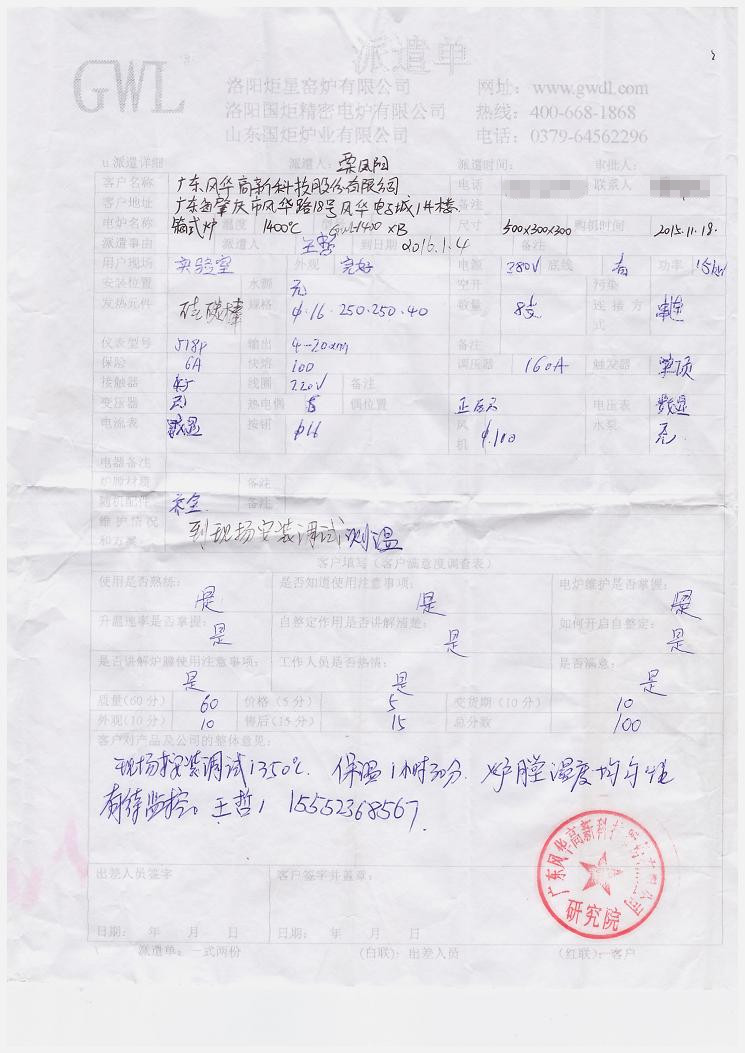 GWL
派遣单
洛阳炬星窑炉有限公司 网址：www.gwdl.com
洛阳国炬精密电炉有限公司 热线：400-668-1868
山东国炬炉业有限公司 电话：0379-64562296
u派遣详细 派遣人：栗凤阳 派遣时间： 审批人：
客户名称 广东风华高新科技股份有限公司 电话 联系人
客户地址 广东省肇庆市风华路18号风华电子城1#楼 备注
电炉名称 箱式炉 温度 1400℃ GWL-1400XB 尺寸 500x300x300 购机时间 2015.11.18.
派遣事由 派遣人 王哲 到日期 2016.1.4 备注
用户现场 实验室 外观 完好 电源 380V 底线 有 功率 15kW
安装位置 水源 无 空开 污染
发热元件 硅碳棒 规格 φ·16·250·250·40 数量 8支 连接方式 串连
仪表型号 518P 输出 4-20mA 备注
保险 6A 快熔 100 调压器 160A 触发器
接触器 线圈 220V 备注
变压器 无 热电偶 S 偶位置 正后方 电压表 数显
电流表 数显 按钮 φ16 风机 φ.100 水泵 无
电器备注
炉膛材质 备注
随机配件 齐全 备注
维护情况和方案： 到现场安装调试测温
客户填写（客户满意度调查表）
使用是否熟练： 是 是否知道使用注意事项： 是 电炉维护是否掌握： 是
升温地率是否掌握： 是 自整定作用是否讲解清楚： 是 如何开启自整定： 是
是否讲解炉膛使用注意事项： 是 工作人员是否热情： 是 是否满意： 是
质量(60分) 60 价格(5分) 5 交货期(10分) 10
外观(10分) 10 售后(15分) 15 总分数 100
客户对产品及公司的整体意见：
现场安装调试1350℃. 保温1小时30分. 炉膛温度均匀性
有待监控。王哲, 15552368567.
广东风华高新科技股份有限公司
研究院
出差人员签字 客户签字并盖章：
日期： 年 月 日 日期： 年 月 日
派遣单：一式两份 (白联)：出差人员 (红联)：客户